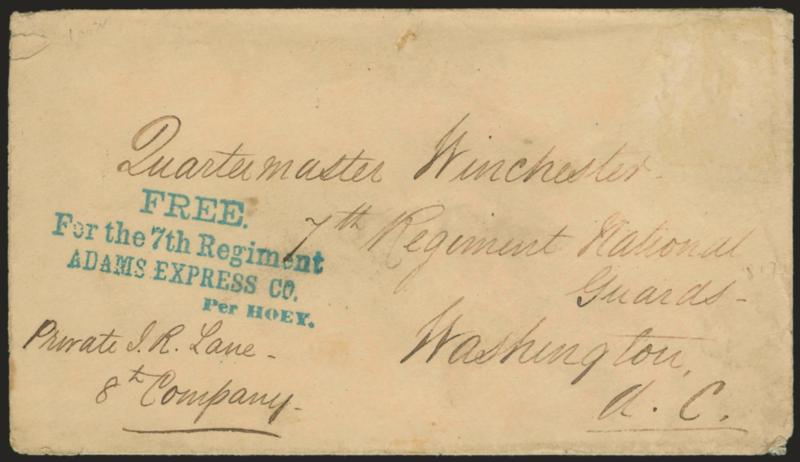 Quartermaster Winchester.
7th Regiment National
Guards-
Washington,
d. C.
FREE.
For the 7th Regiment
ADAMS EXPRESS CO.
Per HOEY.
Private J. R. Lane-
8th Company-